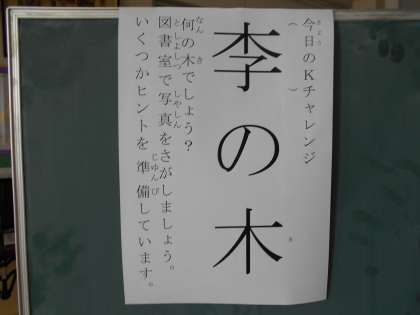 今日のKチャレンジ
李の木
何の木でしょう?
図書室で写真をさがしましょう。
いくつかヒントを準備しています。